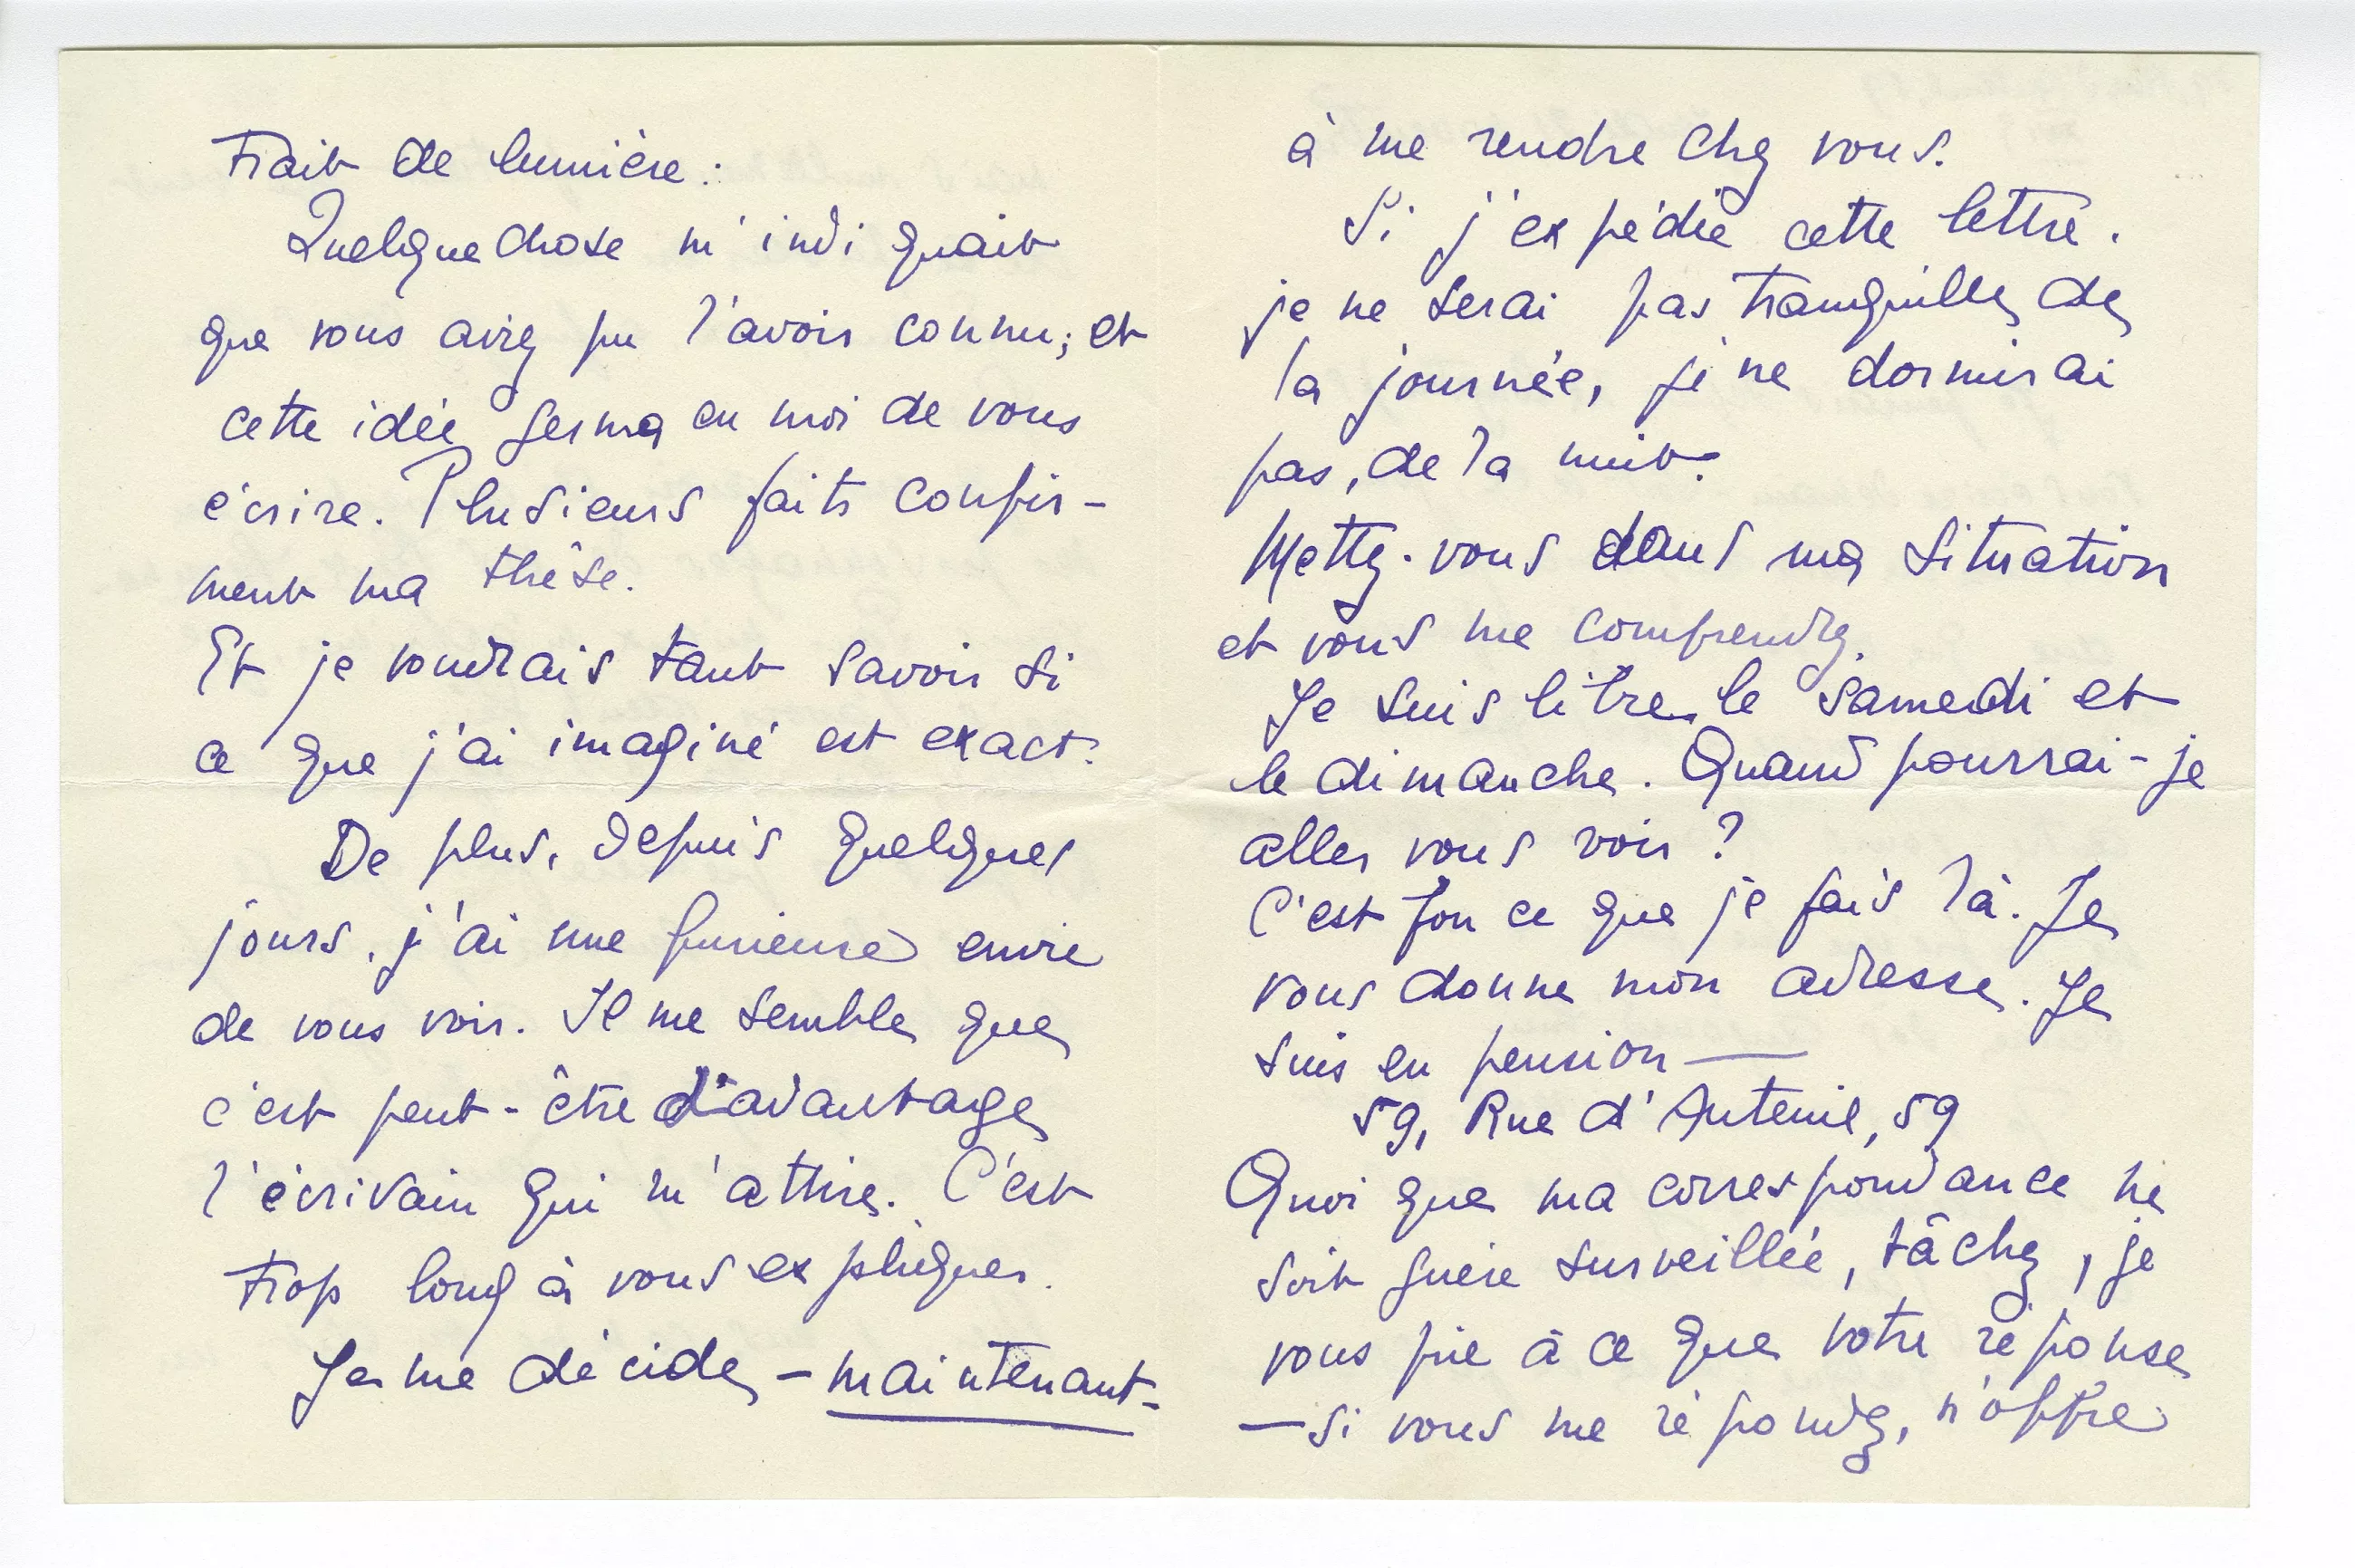 Trait de lumière :
Quelque chose m'indiquait
que vous aviez pu l'avoir connu ; et
cette idée germa en moi de vous
écrire. Plusieurs faits confir-
ment ma thèse.
Et je voudrais tant savoir si
ce que j'ai imaginé est exact.
De plus, depuis quelques
jours, j'ai une furieuse envie
de vous voir. Il me semble que
c'est peut-être d'avantage
l'écrivain qui m'attire. C'est
trop long à vous expliquer.
Je me décide, - maintenant -
à me rendre chez vous.
Si j'expédie cette lettre.
je ne serai pas tranquille, de
la journée, je ne dormirai
pas, de la nuit.
Mettez-vous dans ma situation
et vous me comprendrez.
Je suis libre le samedi et
le dimanche. Quand pourrai-je
aller vous voir ?
C'est fou ce que je fais là. Je
vous donne mon adresse. Je
suis en pension —
59, Rue d'Auteuil, 59
Quoi que ma correspondance ne
soit guère surveillée, tâchez, je
vous prie à ce que votre réponse
— si vous me répondez, n'offre